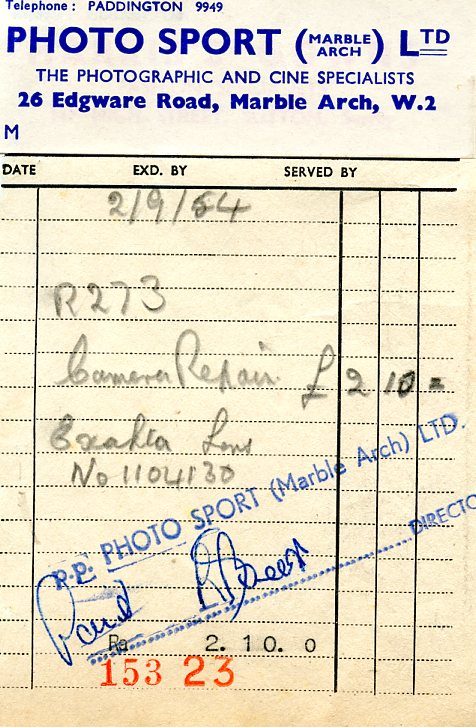 Telephone: PADDINGTON 9949
PHOTO SPORT (MARBLE ARCH) LTD
THE PHOTOGRAPHIC AND CINE SPECIALISTS
26 Edgware Road, Marble Arch, W.2
M
DATE EXD. BY SERVED BY
2/9/54
R273
Camera Repair £ 2 10 =
Exakta Lens
No 1104130
P.P. PHOTO SPORT (Marble Arch) LTD.
DIRECTO
Paid
Ra 2. 10. 0
153 23